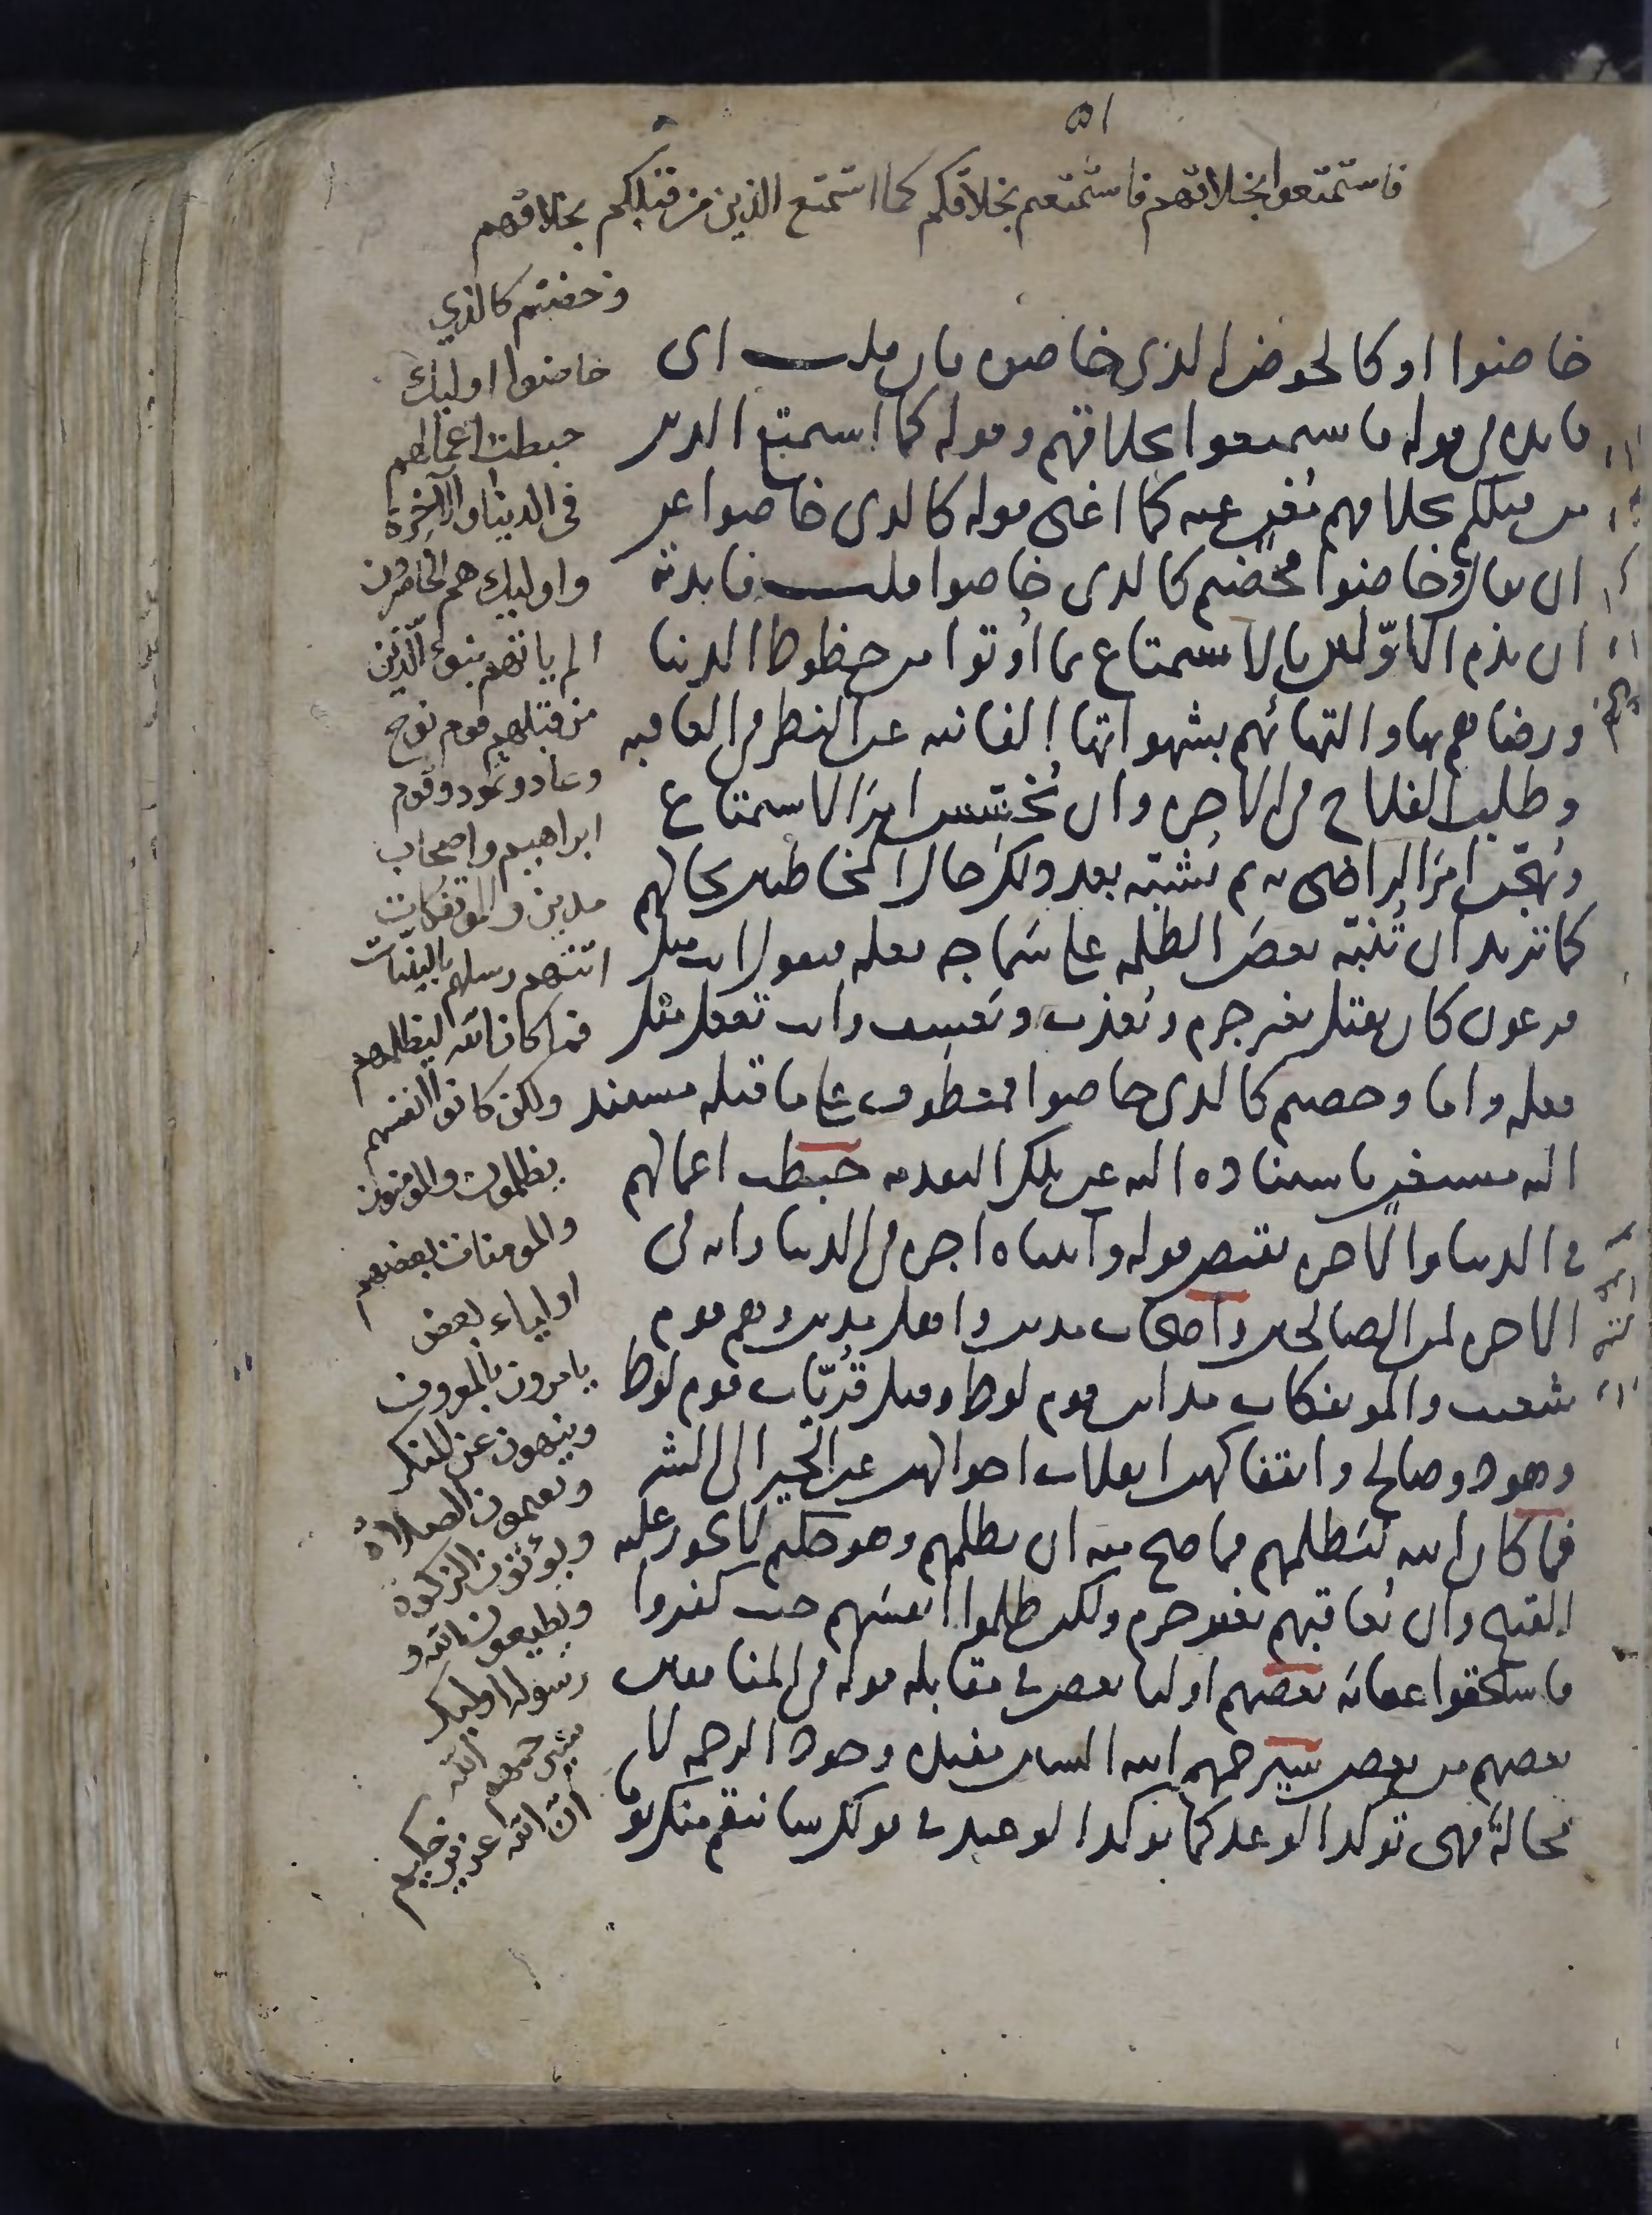 ٥١
فاستمتعوا بخلاقهم فاستمتعتم بخلاقكم كما استمتع الذين من قبلكم بخلاقهم
وخضتم كالذي
خاضوا اوليك
حبطت اعمالهم
فى الدينا والآخرة
واوليك هم الخاسرون
الم ياتهم نبوء الذين
من قبلهم قوم نوح
وعاد وثمود وقوم
ابراهيم واصحاب
مدين والموتفكات
اتتهم رسلهم بالبينات
فما كان الله ليظلمهم
ولكن كانوا انفسهم
يظلمون والمومنون
والمومنات بعضهم
اولياء بعض
يامرون بالمعروف
وينهون عن المنكر
ويقيمون الصلاة
ويؤتون الزكوة
ويطيعون الله و
رسوله اوليك
سيرحمهم الله
ان الله عزيز حكيم
خاضوا او كالخوض الذى خاضوه فان قلت اى
فايده فى قوله فاستمتعوا بخلاقهم وقوله كما استمتع الذين
من قبلكم بخلاقهم مغن عنه كما اغنى قوله كالذى خاضوا عن
ان يقال وخاضوا فخضتم كالذى خاضوا قلت فايدته
ان يذم الاولين بالاستمتاع بما اوتوا من حظوظ الدنيا
ورضاهم بها والتهائهم بشهواتها الفانيه عن النظر فى العاقبه
وطلب الفلاح فى الاخره وان يخسس امر الاستمتاع
ويهجن امر الراضى به ثم يشبه بعد ذلك حال المخاطبين بحالهم
كما تريد ان تنبه بعض الظلمه على سماجه فعله فيقول انت مثل
فرعون كان يقتل بغير جرم ويعذب ويعسف وانت تفعل مثل
فعله واما وخضتم كالذى خاضوا فمعطوف على ما قبله مستند
اليه مستغن باستناده اليه عن تلك التقدمه حبطت اعمالهم
فى الدنيا والاخره نقيض قوله وآتيناه اجره فى الدنيا وانه فى
الاخره لمن الصالحين واصحاب مدين واهل مدين وهم قوم
شعيب والموتفكات مداين قوم لوط وقيل قريات قوم لوط
وهود وصالح وايتفاكهن انقلاب احوالهن عن الخير الى الشر
فما كان الله ليظلمهم فما صح منه ان يظلمهم وهو حكيم لا يجوز عليه
القبيح وان يعاقبهم بغير جرم ولكن ظلموا انفسهم حيث كفروا
فاستحقوا عقابه بعضهم اوليا بعض فى مقابله قوله فى المنافقين
بعضهم من بعض سيرحمهم الله السين مفيده وجود الرحمه لا
محالة فهى توكد الوعد كما توكد الوعيد فى قولك سانتقم منك يوما